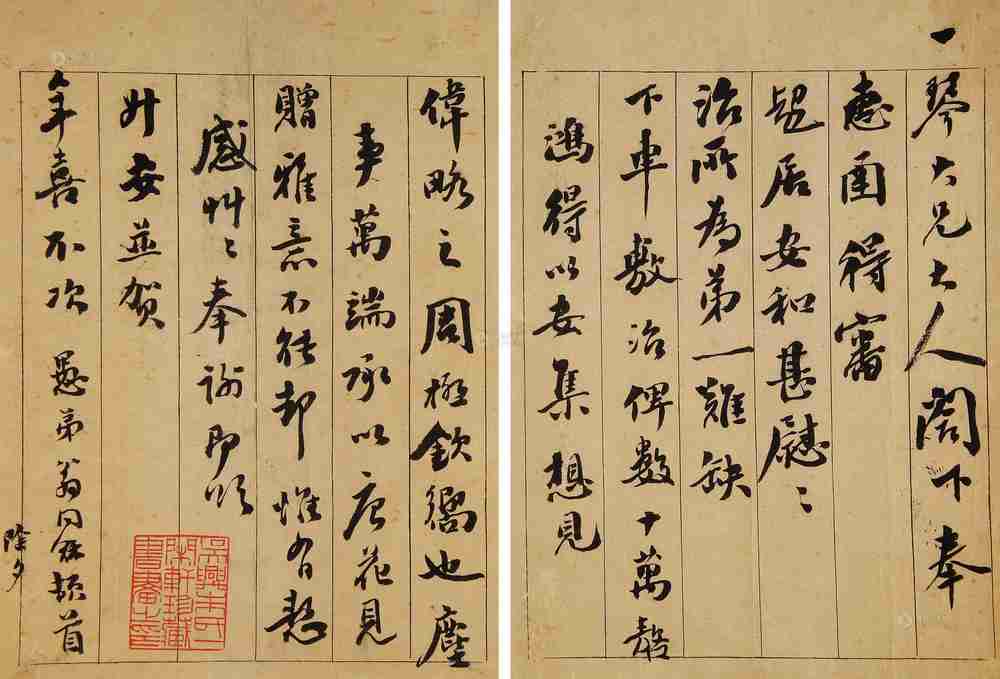 一琴大兄大人閣下奉
惠函得審
起居安和甚慰〻
治所為第一難缺
下車敷治俾數十萬嗸
鴻得以安集想見
偉略之周極欽嚮也塵
事萬端承以唐花見
贈雅意不能却惟有慙
感艸〻奉謝即頌
升安並賀
年喜不次 愚弟翁同龢頓首
除夕
吳興氏
軒珍藏
書畫之印